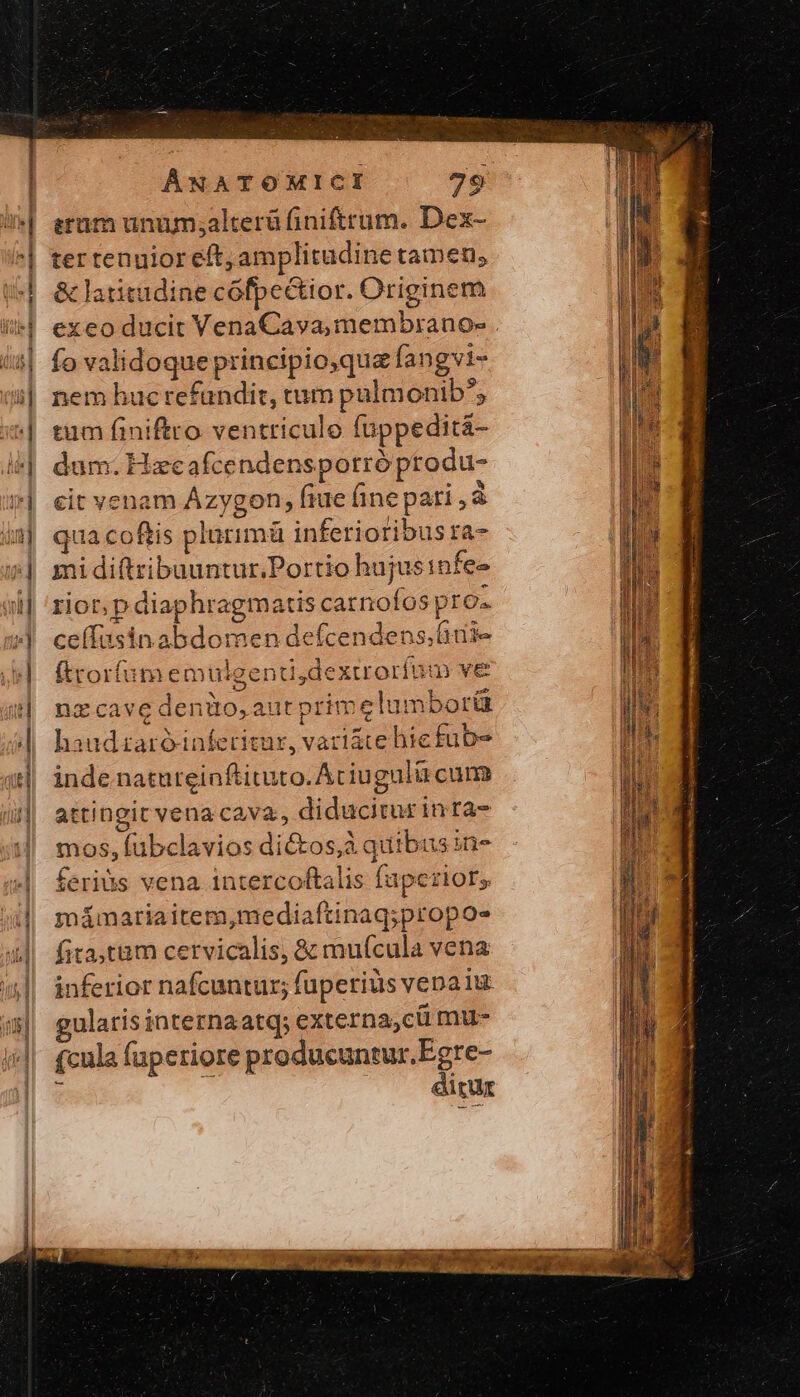 ANATOMICI 79
trum unum,alterū ſiniſtrum. Dex-
ter tenuior eſt, amplitudine tamen,
& latitudine cōſpectior. Originem
ex eo ducit Vena Cava, membrano-
ſo validoque principio,quæ ſangvi-
nem huc refundit, tum pulmonib⁹,
tum ſiniſtro ventriculo ſuppeditā-
dum. Hæc aſcendens porrò produ-
cit venam Azygon, ſiue ſine pari, à
qua coſtis plurimū inferioribus ra-
mi diſtribuuntur. Portio hujus infe-
rior, p diaphragmatis carnoſos pro-
ceſſus in abdomen deſcendens,ſini-
ſtrorſum emulgenti,dextrorſum ve
næ cavę denùo, aut prim elumborū
haud rarò inſeritur, variāte hic ſub-
inde natureinſtituto. At iugulū cum
attingit vena cava, diducitur in ra-
mos, ſubclavios dictos,à quibus in-
feriùs vena intercoſtalis ſuperior,
māmaria item,mediaſtina q; propo-
ſita,tum cervicalis, & muſcula vena
inferior naſcuntur; ſuperiùs vena iu
gularis interna atq; externa,cū mu-
ſcula ſuperiore producuntur. Egre-
ditur